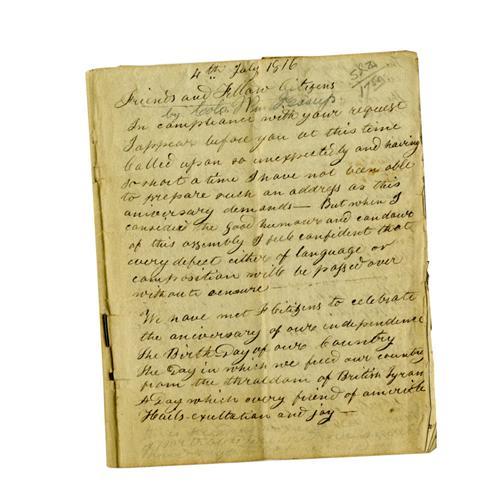 4th July 1916
Friends and Fellow Citizens
by Wm Jessup
In compliance with your request
I appear before you at this time
Called upon so unexpectedly and having
so short a time I have not been able
to prepare such an address as this
aniversary demands — But when I
consider the good humour and candour
of this assembly I feel confident that
every defect either of language or
composition will be passed over
without censure —
We have met F Citizens to celebrate
the aniversary of our independence
The Birth Day of our Country
The Day in which we freed our country
from the thraldom of British Tyran
A Day which every friend of america
Hails exultation and joy —